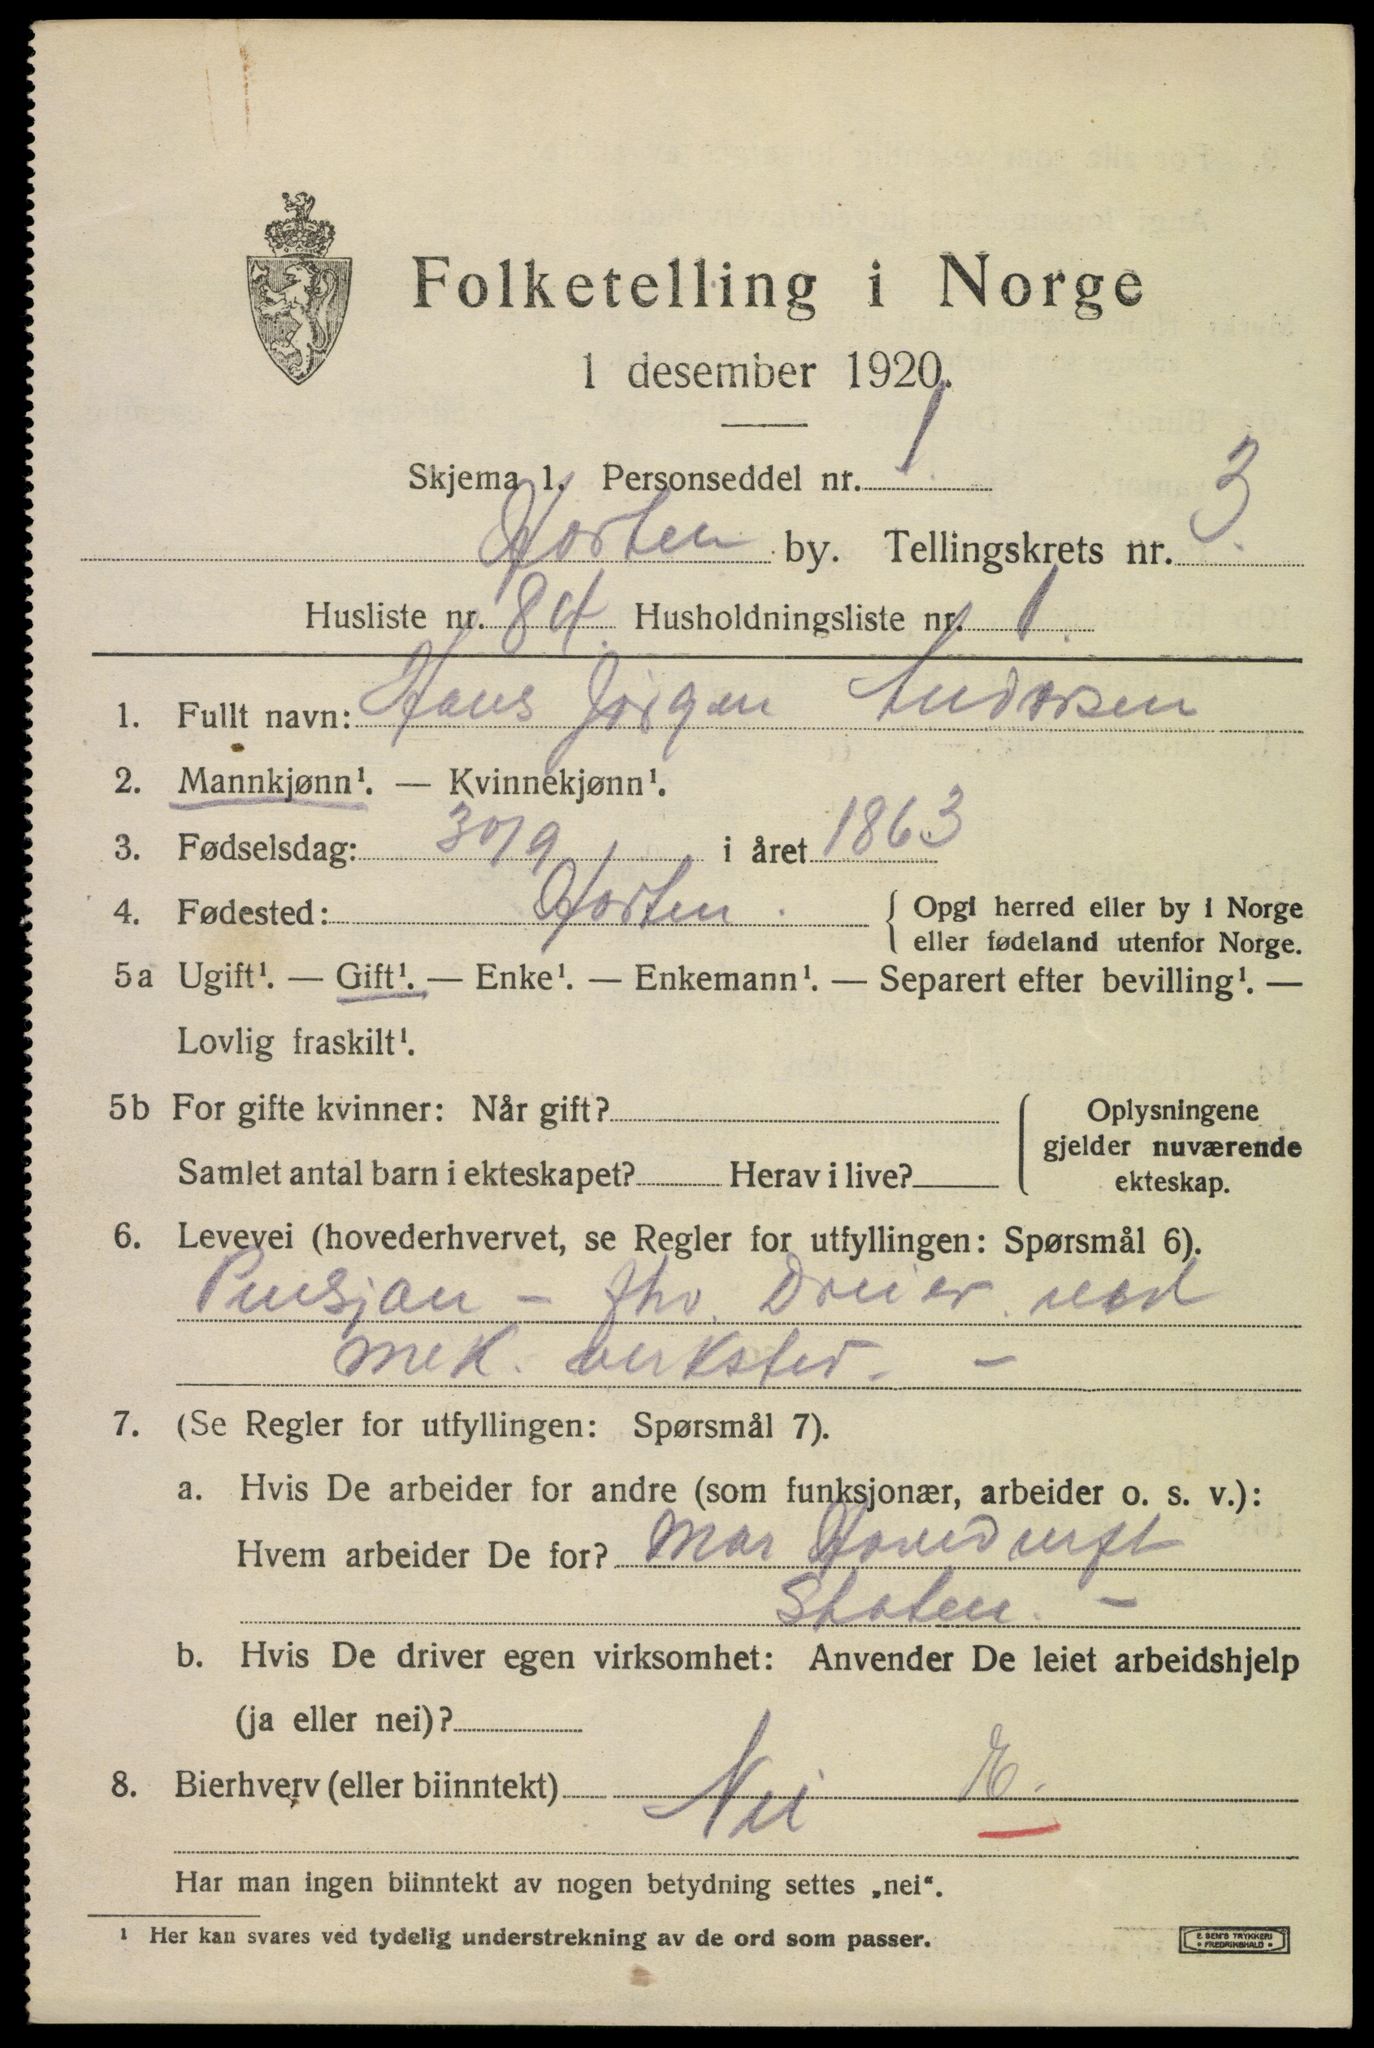 Folketelling i Norge
1 desember 1920.
Skjema 1. Personseddel nr. 1
Horten by. Tellingskrets nr. 3
Husliste nr. 84. Husholdningsliste nr. 1.
1. Fullt navn: Hans Jørgen Andersen
2. Mannkjønn¹. — Kvinnekjønn¹.
3. Fødselsdag: 30/9 i året 1863
4. Fødested: Horten. { Opgi herred eller by i Norge
eller fødeland utenfor Norge.
5a Ugift¹. — Gift¹. — Enke¹. — Enkemann¹. — Separert efter bevilling¹. —
Lovlig fraskilt¹.
5b For gifte kvinner: Når gift?
Samlet antal barn i ekteskapet? Herav i live?
Oplysningene
gjelder nuværende
ekteskap.
6. Levevei (hovederhvervet, se Regler for utfyllingen: Spørsmål 6).
Pensjon - fhv. Dreier ved
mek. verksted. -
7. (Se Regler for utfyllingen: Spørsmål 7).
a. Hvis De arbeider for andre (som funksjonær, arbeider o. s. v.):
Hvem arbeider De for? Mar Hovedverft
Staten. -
b. Hvis De driver egen virksomhet: Anvender De leiet arbeidshjelp
(ja eller nei)?
8. Bierhverv (eller biinntekt) Nei E.
Har man ingen biinntekt av nogen betydning settes „nei“.
¹ Her kan svares ved tydelig understrekning av de ord som passer.
E. SEM'S TRYKKERI
• FREDRIKSHALD •